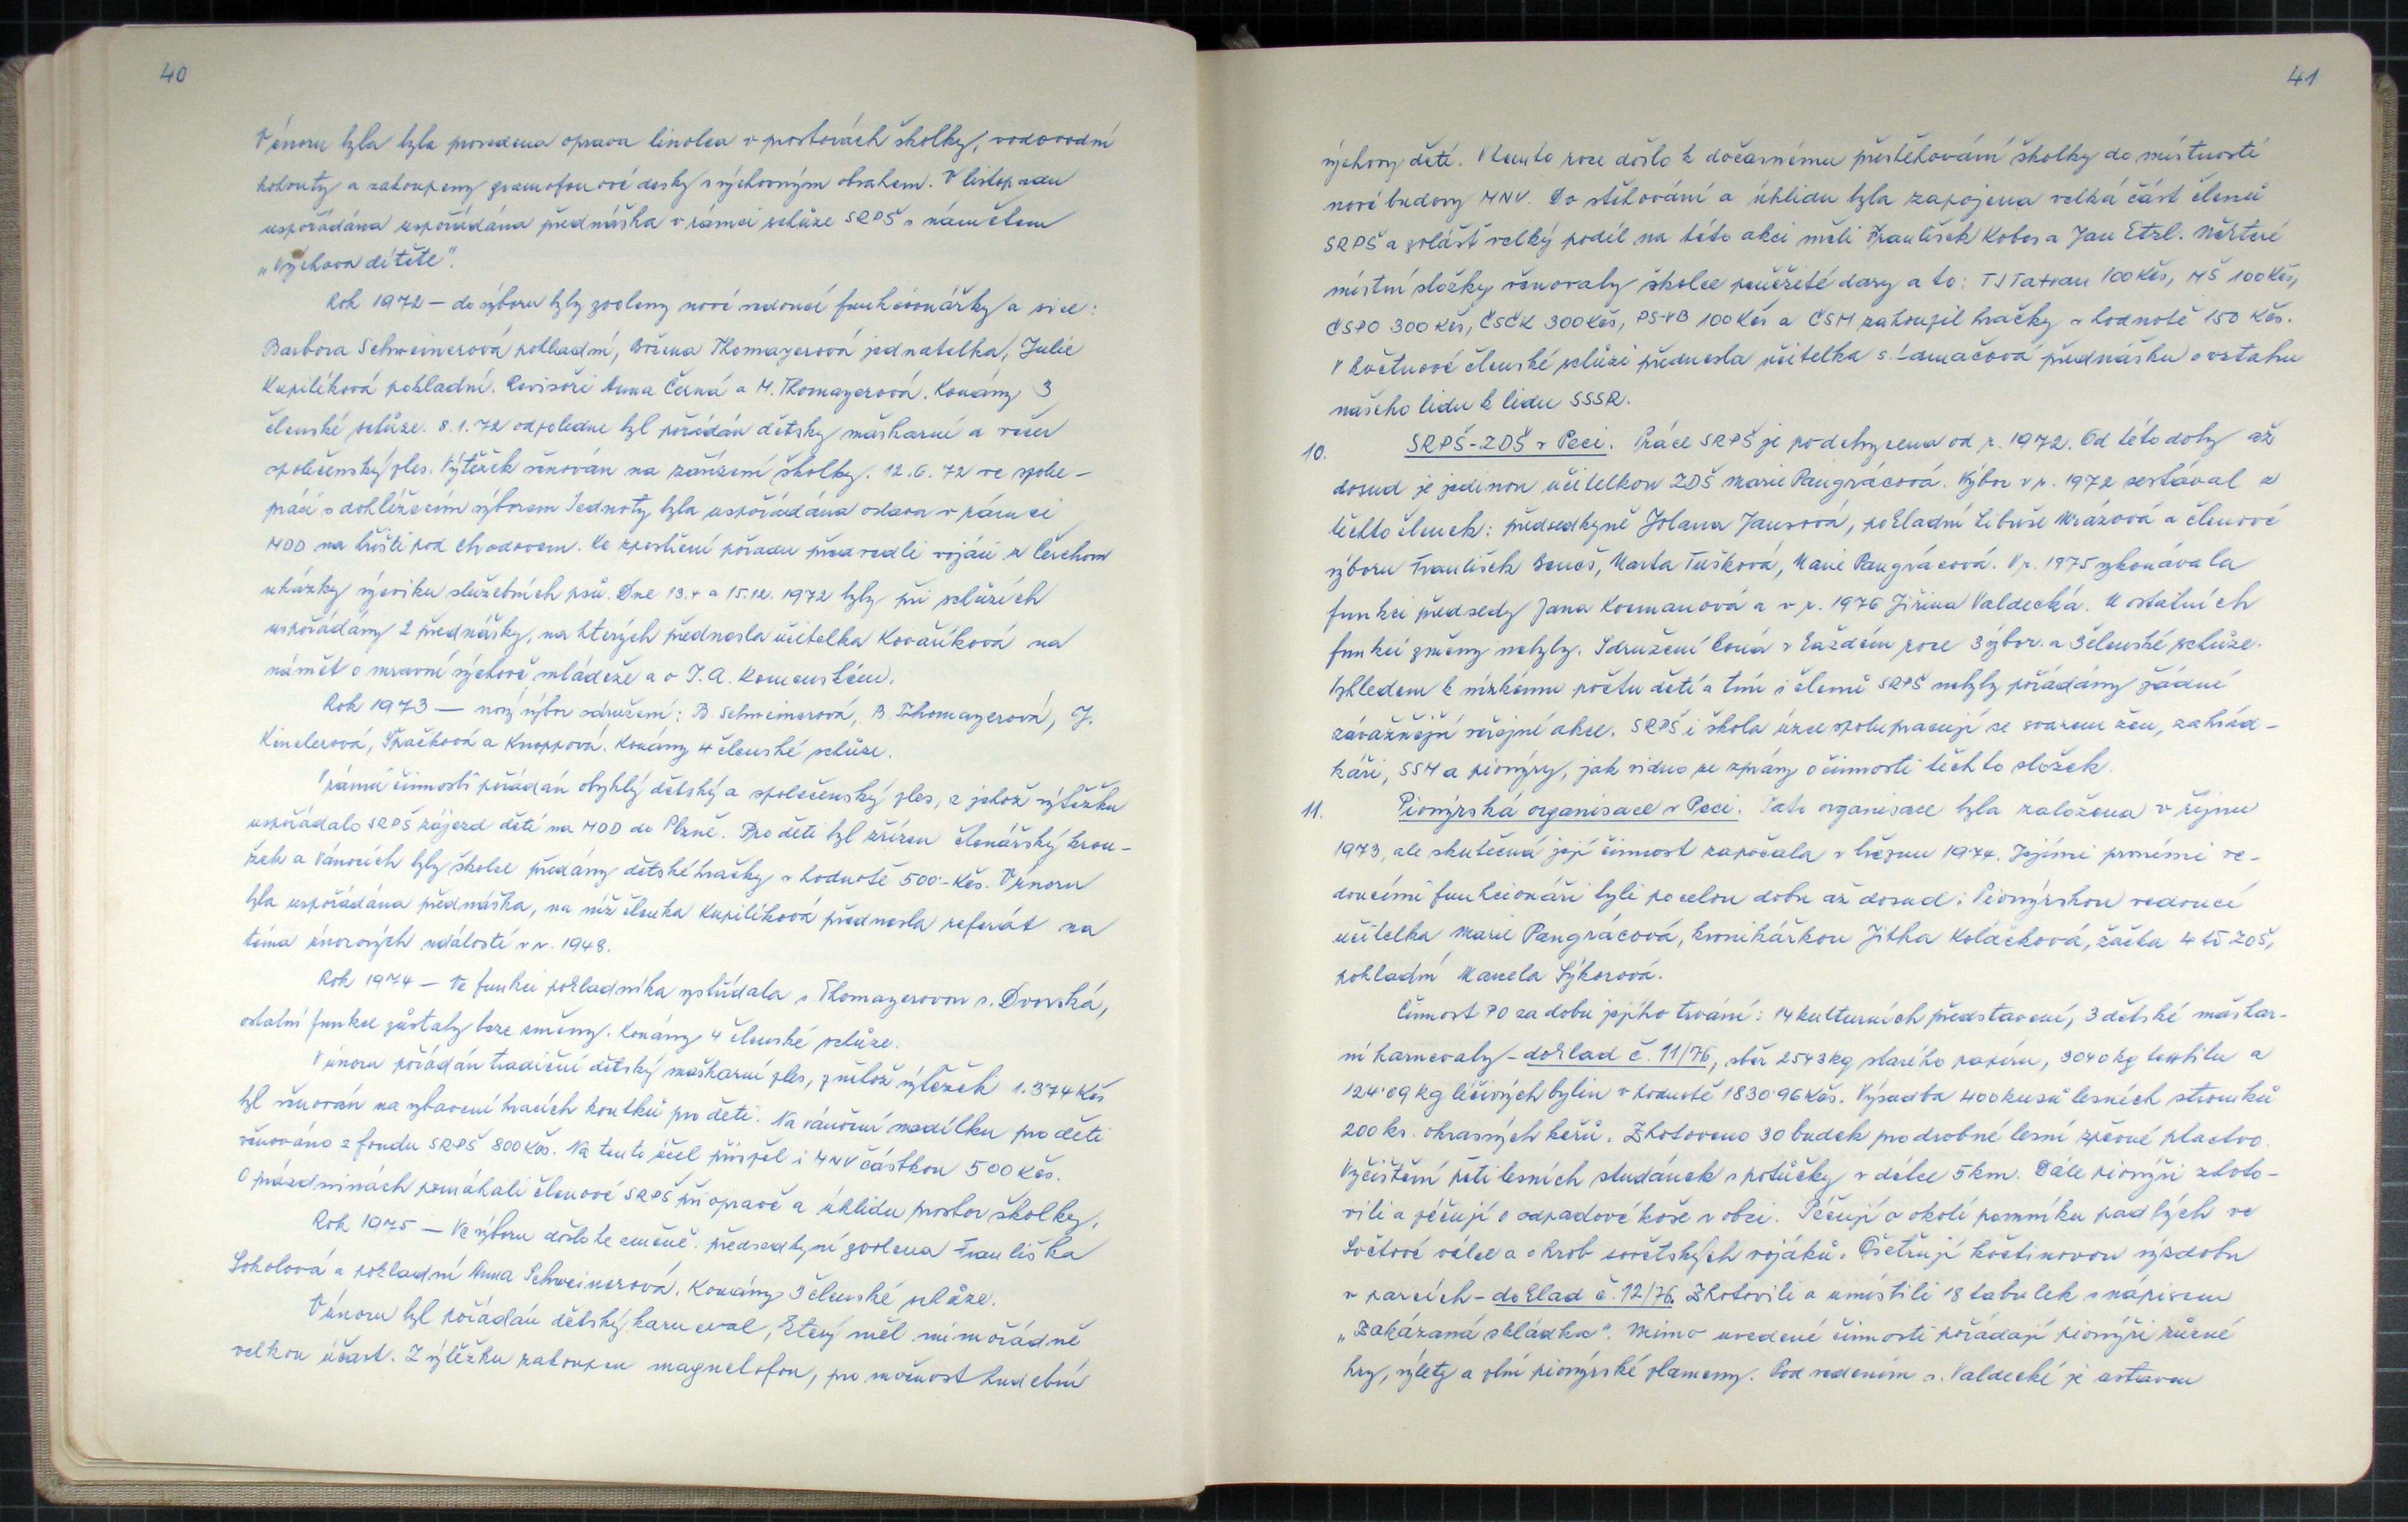 40
V únoru byla byla provedena oprava linolea v prostorách školky, vodovodní
kohouty a zakoupeny gramofonové desky s výchovným obsahem. V listopadu
uspořádána uspořádána přednáška v rámci schůze SRPŠ s námětem
„Výchova dítěte".
Rok 1972 — do výboru byly zvoleny nové vedoucí funkcionářky a sice:
Barbora Schweinerová pokladní, Božena Thomayerová jednatelka, Julie
Kupilíková pokladní. Revisoři Anna Černá a M. Thomayerová. Konány 3
členské schůze. 8.1.72 odpoledne byl pořádán dětský maškarní a večer
společenský ples. Výtěžek věnován na zařízení školky. 12.6.72 ve spolu-
práci s dohlížecím výborem Jednoty byla uspořádána oslava v rámci
MDD na hřišti pod Chodovem. Ke zpestření pořadu předvedli vojáci z Čerchova
ukázky výcviku služebních psů. Dne 13.4 a 15.12.1972 byly při schůzích
uspořádány 2 přednášky, na kterých přednesla učitelka Kovaříková na
námět o mravní výchově mládeže a o J. A. Komenském.
Rok 1973 — nový výbor sdružení: B. Schweinerová, B. Thomayerová, J.
Kinclerová, Špačková a Knoppová. Konány 4 členské schůze.
V rámci činnosti pořádán obvyklý dětský a společenský ples, z jehož výtěžku
uspořádalo SRPŠ zájezd dětí na MDD do Plzně. Pro děti byl zřízen čtenářský krou-
žek a Vánocích byly školce předány dětské hračky v hodnotě 500'- Kčs. V únoru
byla uspořádána přednáška, na níž členka Kupilíková přednesla referát na
téma únorových událostí v r. 1948.
Rok 1974 — Ve funkci pokladníka vystřídala s. Thomayerovou s. Dvorská,
ostatní funkce zůstaly beze změny. Konány 4 členské schůze.
V únoru pořádán tradiční dětský maškarní ples, z něhož výtěžek 1.374 Kčs
byl věnován na vybavení hracích koutků pro děti. Na vánoční nadílku pro děti
věnováno z fondu SRPŠ 800 Kčs. Na tento účel přispěl i MNV částkou 500 Kčs.
O prázdninách pomáhali členové SRPŠ při opravě a úklidu prostor školky.
Rok 1975 — Ve výboru došlo ke změně. předsedkyní zvolena Františka
Sokolová a pokladní Anna Schweinerová. Konány 3 členské schůze.
V únoru byl pořádán dětský karneval, který měl mimořádně
velkou účast. Z výtěžku zakoupen magnetofon, pro možnost hudební
41
výchovy dětí. V tomto roce došlo k dočasnému přestěhování školky do místností
nové budovy MNV. Do stěhování a úklidu byla zapojena velká část členů
SRPŠ a zvlášť velký podíl na této akci měli František Kobes a Jan Etzl. Některé
místní složky věnovaly školce peněžité dary a to: TJ Tatran 100 Kčs, MŠ 100 Kčs,
ČSPO 300 Kčs, ČSČK 300 Kčs, PS-VB 100 Kčs a ČSM zakoupil hračky v hodnotě 150 Kčs.
V květnové členské schůzi přednesla učitelka s. přednášku o vztahu
našeho lidu k lidu SSSR.
10. SRPŠ-ZDŠ v Peci. Práce SRPŠ je podchycena od r. 1972. Od této doby až
dosud je jedinou učitelkou ZDŠ Marie Pangrácová. Výbor v r. 1972 sestával z
těchto členek: předsedkyně Jolana Jansová, pokladní Libuše Mrázová a členové
výboru František Beneš, Marta Tušková, Marie Pangrácová. V r. 1975 vykonávala
funkci předsedy Jana Kocmanová a v r. 1976 Jiřina Valdecká. U ostatních
funkcí změny nebyly. Sdružení koná v každém roce 3 výbor. a 3 členské schůze.
Vzhledem k nízkému počtu dětí a tím i členů SRPŠ nebyly pořádány žádné
závažnější veřejné akce. SRPŠ i škola úzce spolupracují se svazem žen, zahrád-
káři, SSM a pionýry, jak vidno ze zprávy o činnosti těchto složek.
11. Pionýrská organisace v Peci. Tato organisace byla založena v říjnu
1973, ale skutečná její činnost započala v březnu 1974. Jejími prvními ve-
doucími funkcionáři byli po celou dobu až dosud: Pionýrskou vedoucí
učitelka Marie Pangrácová, kronikářkou Jitka Koláčková, žačka 4 tř ZDŠ,
pokladní Marcela Sýkorová.
Činnost PO za dobu jejího trvání: 14 kulturních představení, 3 dětské maškar-
ní karnevaly - doklad č. 11/76, sběr 2543 kg starého papíru, 3040 kg textilu a
124'09 kg léčivých bylin v hodnotě 1830'96 Kčs. Výsadba 400 kusů lesních stromků
200 ks. okrasných keřů. Zhotoveno 30 budek pro drobné lesní zpěvné ptactvo.
Vyčištění pěti lesních studánek s potůčky v délce 5 km. Dále pionýři zhoto-
vili a pečují o odpadové koše v obci. Pečují o okolí pomníku padlých ve
Světové válce a o hrob sovětských vojáků. Ošetřují květinovou výzdobu
v parcích - doklad č. 12/76. Zhotovili a umístili 18 tabulek s nápisem
„Zakázaná skládka". Mimo uvedené činnosti pořádají pionýři různé
hry, výlety a plní pionýrské plameny. Pod vedením s. Valdecké je ustaven